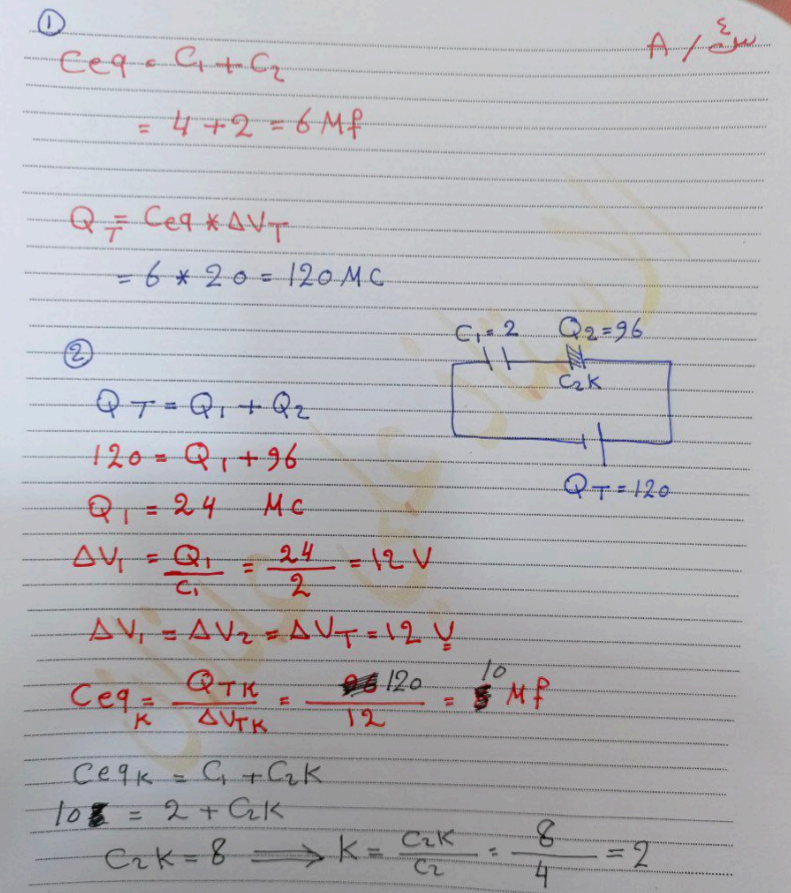 ①
س٤ / A
Ceq = C₁ + C₂
= 4 + 2 = 6 Mf
Q_T = Ceq * ΔV_T
= 6 * 20 = 120 MC
②
C₁ = 2 Q₂ = 96
C₂K
Q_T = 120
Q_T = Q₁ + Q₂
120 = Q₁ + 96
Q₁ = 24 MC
ΔV₁ = Q₁/C₁ = 24/2 = 12 V
ΔV₁ = ΔV₂ = ΔV_T = 12 V
Ceq_K = Q_TK/ΔV_TK = 120/12 = 10 Mf
Ceq_K = C₁ + C₂K
10 = 2 + C₂K
C₂K = 8 ⟹ K = C₂K/C₂ = 8/4 = 2